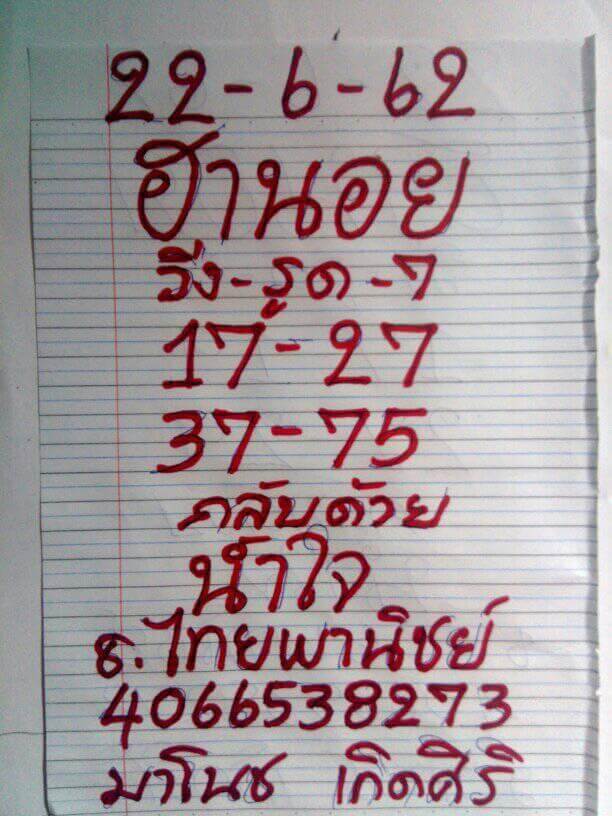 22-6-62
ฮานอย
วิ่ง-รูด-7
17-27
37-75
กลับด้วย
น้ำใจ
ธ.ไทยพานิชย์
4066538273
มาโนช เกิดศิริ